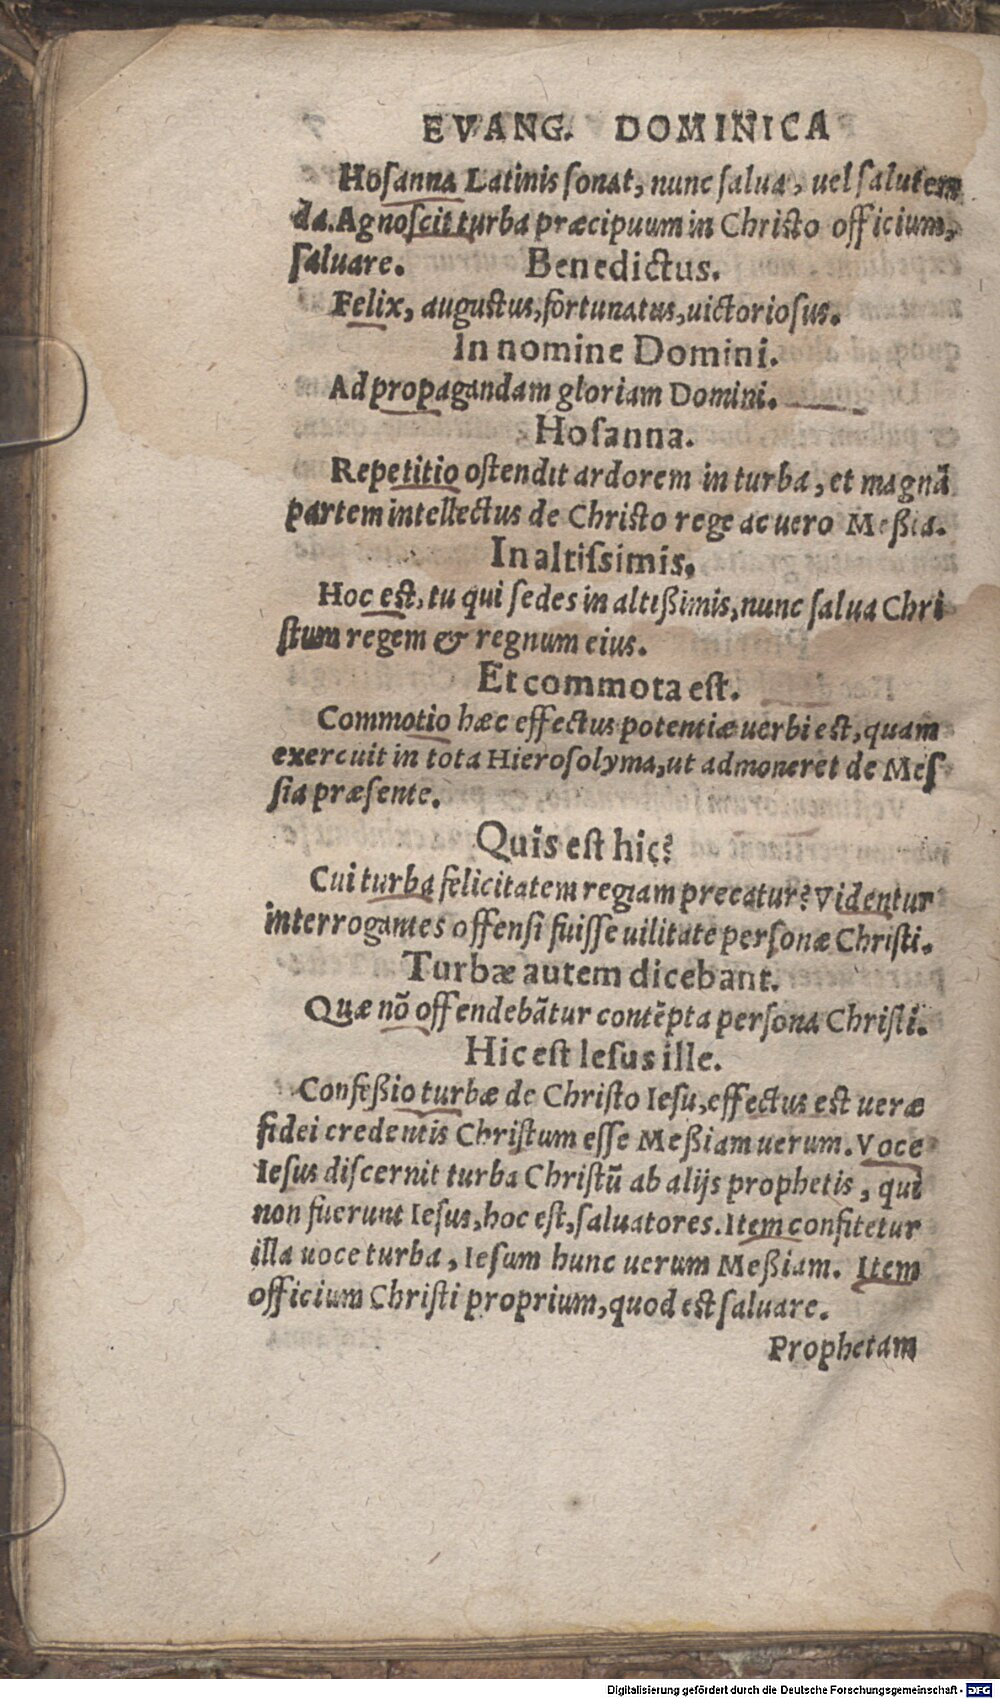 EVANG. DOMINICA
Hoſanna Latinis ſonat, nunc ſalua, uel ſalutem
da. Agnoſcit turba præcipuum in Chriſto officium,
ſaluare. Benedictus.
Felix, auguſtus, fortunatus, uictorioſus.
In nomine Domini.
Ad propagandam gloriam Domini.
Hoſanna.
Repetitio oſtendit ardorem in turba, et magnā
partem intellectus de Chriſto rege ac uero Meßia.
In altiſsimis.
Hoc eſt, tu qui ſedes in altißimis, nunc ſalua Chri
ſtum regem & regnum eius.
Et commota eſt.
Commotio hæc effectus potentiæ uerbi eſt, quam
exercuit in tota Hieroſolyma, ut admoneret de Meſ
ſia præſente.
Quis eſt hic?
Cui turba felicitatem regiam precatur? Videntur
interrogantes offenſi fuiſſe uilitate perſonæ Chriſti.
Turbæ autem dicebant.
Quæ nō offendebātur contēpta perſona Chriſti.
Hic eſt Ieſus ille.
Confeßio turbæ de Chriſto Ieſu, effectus eſt ueræ
fidei credentis Chriſtum eſſe Meßiam uerum. Voce
Ieſus diſcernit turba Chriſtū ab alijs prophetis, qui
non fuerunt Ieſus, hoc eſt, ſaluatores. Item confitetur
illa uoce turba, Ieſum hunc uerum Meßiam. Item
officium Chriſti proprium, quod eſt ſaluare.
Prophetam
Digitalisierung gefördert durch die Deutsche Forschungsgemeinschaft - DFG